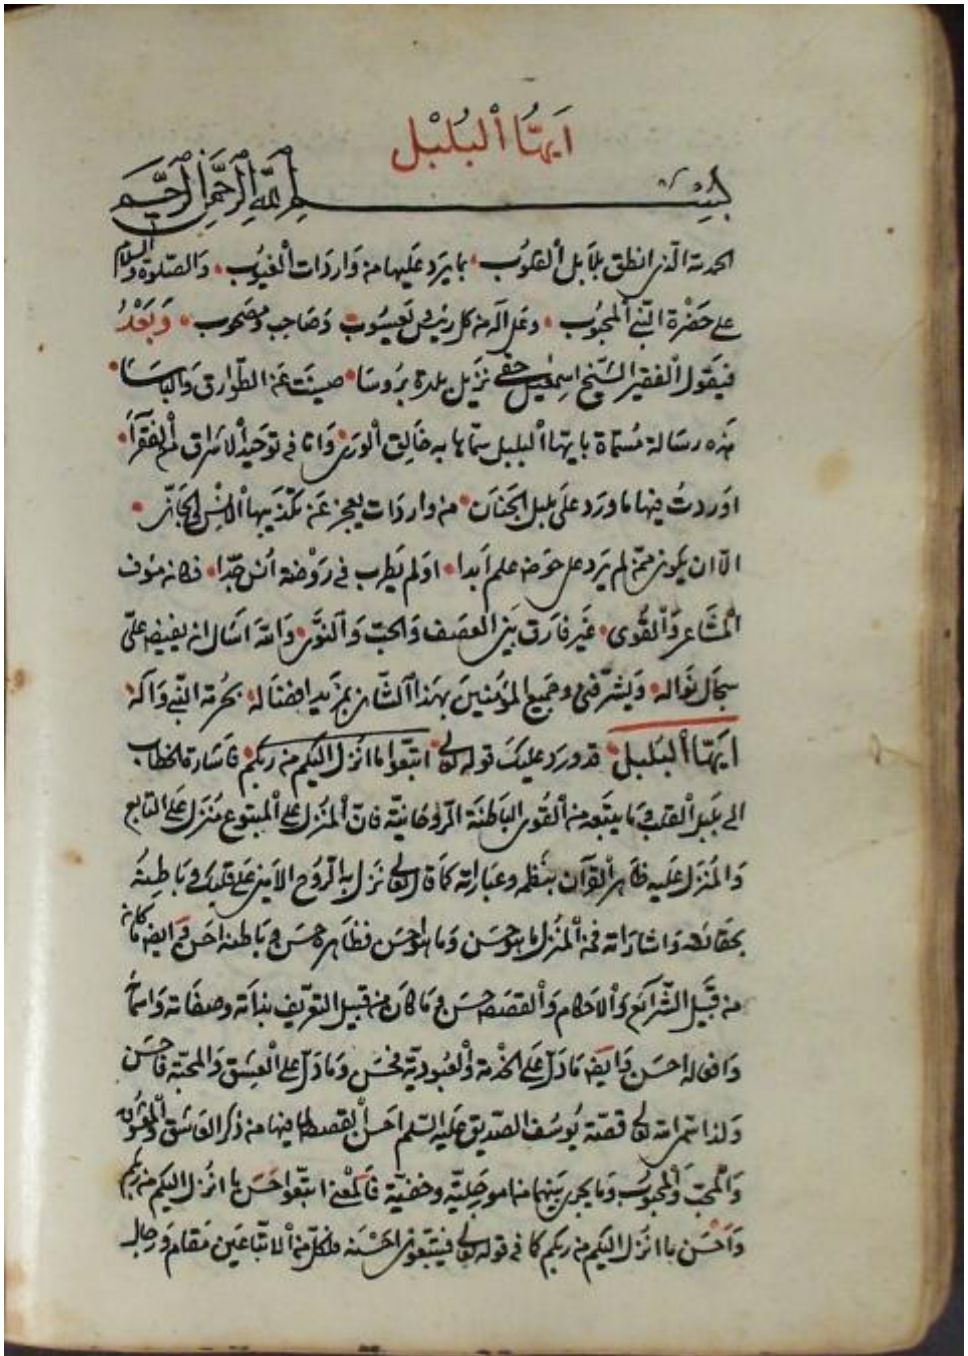 ايهتا البلبل
بسم الله الرحمن الرحيم
الحمد لله الذى انطق بلابل القلوب • بما يرد عليها من واردات الغيوب • والصلوة والسلام
على حضرة النبى المحبوب • وعلى آله من كل رئيس يعسوب وصاحب ومصحوب • وبعد
فيقول الفقير الشيخ اسمعيل حقى نزيل بلدة بروسا • صينت عن الطوارق والباسا •
هذه رسالة مسماة بايهتا البلبل سماها به خالق الورى • وانا فى توحيد الاشراق لم الفقرآء •
اوردت فيها ما ورد على بلبل الجنان • من واردات يعجز عن تكذيبها الانس والجان •
الا ان يكون ممن لم يرد على حوض علم ابدا • او لم يطرب فى روضة انس جدا • فكانه مؤف
المشاعر والقوى • غير فارق بين العصف والحب والنوى • والله اسال ان يفيض على
سجال نواله • ويشرفنى وجميع المؤمنين بهذا الشان بمزيد افضاله • بحرمة النبى وآله
ايهتا البلبل • قد ورد عليك قوله تعالى اتبعوا ما انزل اليكم من ربكم • فاشار بالخطاب
الى بلبل القلب وما يتبعه من القوى الباطنة الروحانية فان المنزل على المتبوع منزل على التابع
والمنزل عليه ظاهر القرآن بنظمه وعباراته كما قال تعالى نزل به الروح الامين على قلبك وباطنه
بحقائقه واشاراته فمن المنزل ما هو حسن وما هو احسن فظاهره حسن وباطنه احسن وايضا ما كان
من قبيل الشرائع والاحكام والقصص حسن وما كان من قبيل التعريف بذاته وصفاته واسمائه
وافعاله احسن وايضا ما دل على الخدمة والعبودية فحسن وما دل على العشق والمحبة فاحسن
ولذا سمى الله تعالى قصة يوسف الصديق عليه السلم احسن القصص لما فيها من ذكر العاشق والمعشوق
والمحب والمحبوب وما يجرى بينهما من امور جلية وخفية فالمعنى اتبعوا حسن ما انزل اليكم من ربكم
واحسن ما انزل اليكم من ربكم كما فى قوله تعالى فيتبعون احسنه فلكل من الاتباعين مقام ورجال